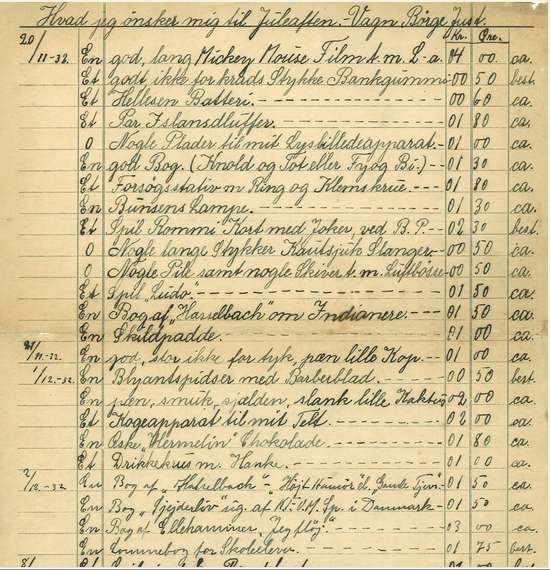 Hvad jeg ønsker mig til Juleaften. - Vagn Börge Just.
Kr. Øre.
20/11-32. En god, lang Mickey Mouse Film t. m. L-a. 04 00 ca.
Et godt, ikke for hrads Stykke Bankgummi 00 50 best.
Et Hellesen Batteri. 00 60 ca.
Et Par Islansdluffer. 01 80 ca.
0 Nogle Plader til mit Lysbilledeapparat. 01 00 ca.
En god Bog. (Knold og Tot eller Fy og Bi.) 01 30 ca.
Et Forsøgsstativ m Ring og Klemskrue. 01 80 ca.
En Bunsens Lampe. 01 30 ca.
Et Spil Rommi Kort med Joker, ved B. P. 02 30 best.
0 Nogle lange Stykker Kautsjuk Slanger. 00 50 ca.
0 Nogle Pile samt nogle Skiver t. m. Luftbøsse 00 50 ca.
Et Spil "Ludo". 01 50 ca.
En Bog af "Hasselbach" om Indianere. 01 50 ca.
En Skildpadde. 01 00 ca.
/11-32. En god, stor ikke for tyk, pæn lille Kop. 01 00 ca.
1/12-32. En Blyantspidser med Barberblad. 00 50 best.
En pæn, smuk, sjælden, slank lille Kaktus 02 00 ca.
Et Kogeapparat til mit Telt. 02 00 ca.
En Æske, "Hermelin" Chokolade. 01 80 ca.
Et Drikkekrus m. Hanke. 01 00 ca.
2/12-32 En Bog af "Hasselbach" - "Højt Humør" 01 50 ca.
En Bog "Spejderliv" ug. af K.F.U.M. Sp. i Danmark 01 50 ca.
En Bog af Ellehammer, "Jeg fløj". 03 00 ca.
En Lommebog for Skoleelever. 01 75 best.